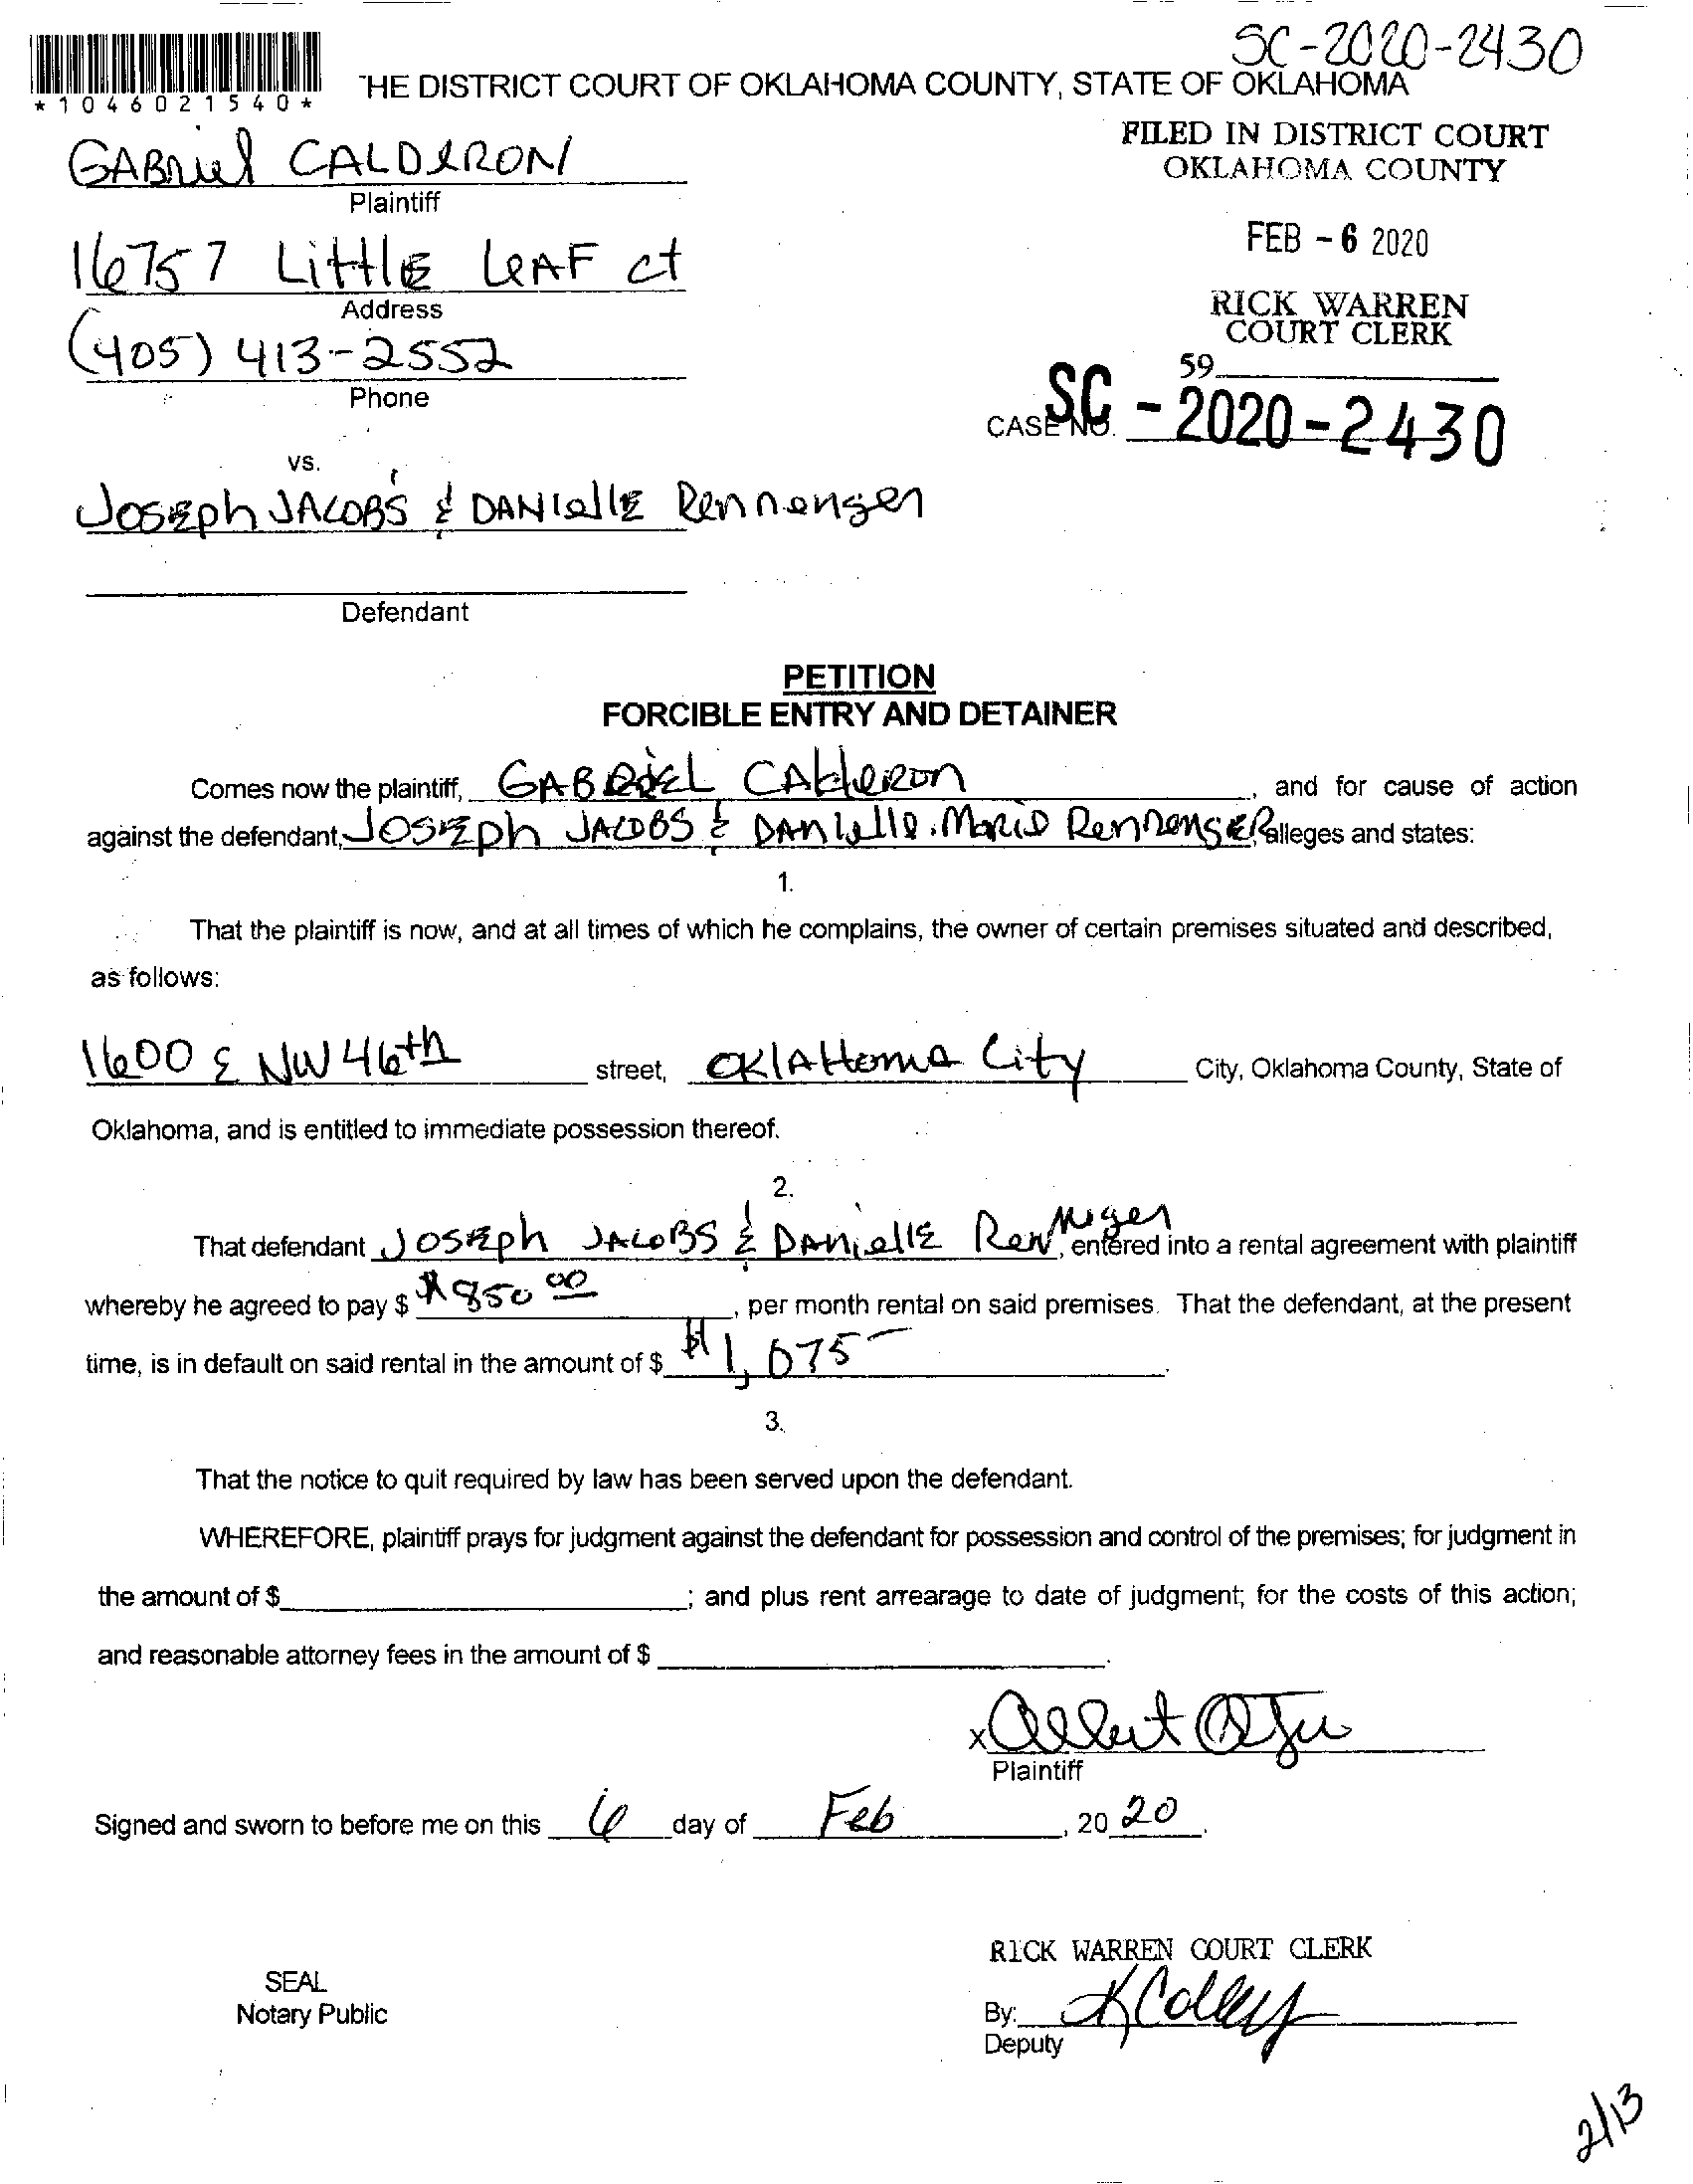 SC-2020-2430
*1046021540*
THE DISTRICT COURT OF OKLAHOMA COUNTY, STATE OF OKLAHOMA
FILED IN DISTRICT COURT
OKLAHOMA COUNTY
GABRIEL CALDERON
Plaintiff
FEB - 6 2020
16757 Little LEAF ct
Address
RICK WARREN
COURT CLERK
(405) 413-2552
59
Phone
CASE NO. SC - 2020-2430
vs.
JOSEPh JACOBS & DANIelle Rennenger
Defendant
PETITION
FORCIBLE ENTRY AND DETAINER
Comes now the plaintiff, GABRIEL CAldeRon, and for cause of action
against the defendant, JOSEPh JACOBS & DANIelle. Marie RennengER, alleges and states:
1.
That the plaintiff is now, and at all times of which he complains, the owner of certain premises situated and described,
as follows:
1600 E NW 46th street, OKlAHoma City City, Oklahoma County, State of
Oklahoma, and is entitled to immediate possession thereof.
2.
That defendant JOSEph JACOBS & DANielle Renneger, entered into a rental agreement with plaintiff
whereby he agreed to pay $ $850 00, per month rental on said premises. That the defendant, at the present
time, is in default on said rental in the amount of $ $1,075-.
3.
That the notice to quit required by law has been served upon the defendant.
WHEREFORE, plaintiff prays for judgment against the defendant for possession and control of the premises; for judgment in
the amount of $ ; and plus rent arrearage to date of judgment; for the costs of this action;
and reasonable attorney fees in the amount of $ .
x
Plaintiff
Signed and sworn to before me on this 6 day of Feb, 20 20.
RICK WARREN COURT CLERK
SEAL
Notary Public
By: K Colley
Deputy
2/13